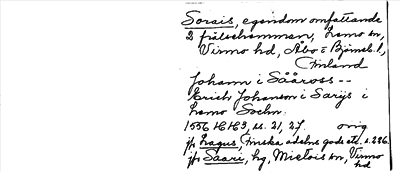 Sorais, egendom omfattande
2 frälsehemman, Lemo sn,
Virmo hd, Åbo o Björneb. l,
Finland
Johann i Sååross --
Erich Johanson i Sarijs i
Lemo Sochn.
1556 H H 3, ss. 21, 27. orig
jfr Lagus, Finska adelns gods etc. s. 286.
jfr Saari, hg, Mietois sn, Virmo
hd